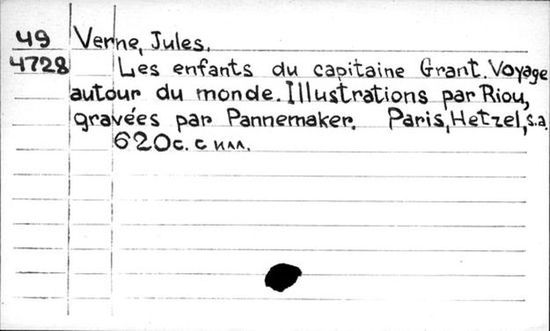 49 Verne, Jules.
4728 Les enfants du capitaine Grant. Voyage
autour du monde. Illustrations par Riou,
gravées par Pannemaker. Paris, Hetzel, s.a.
620с. с илл.